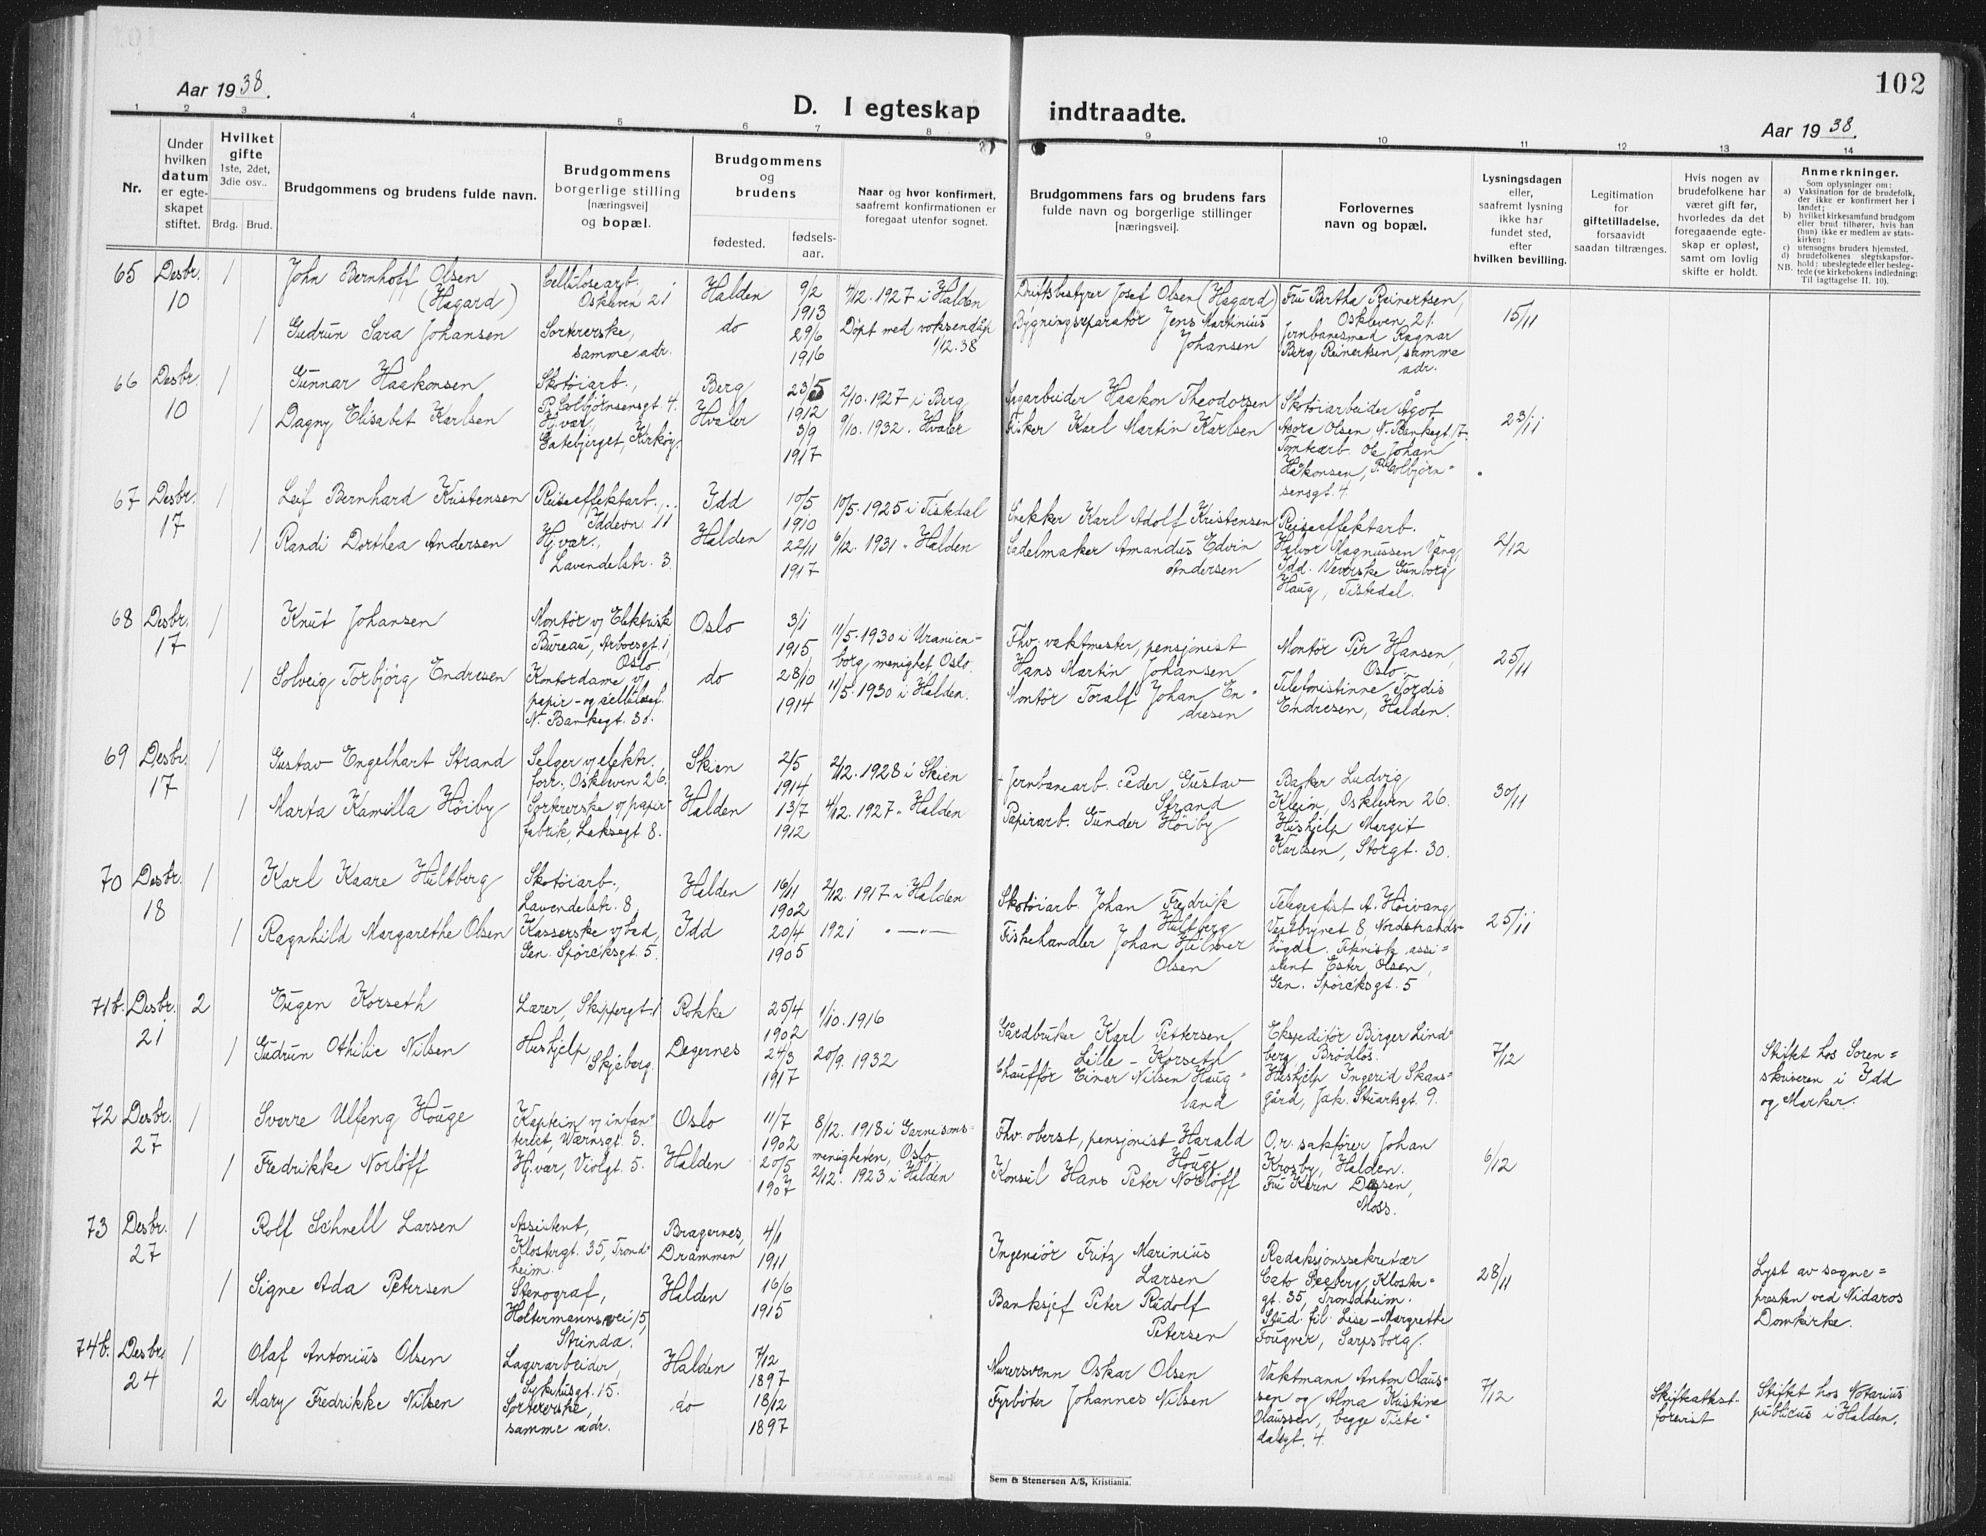 102
Aar 1938.
D. I egteskap indtraadte.
Aar 1938.
1 2 3 4 5 6 7 8 9 10 11 12 13 14
Nr.
Under hvilken datum er egteskapet stiftet.
Hvilket gifte 1ste, 2det, 3die osv..
Brdg. Brud.
Brudgommens og brudens fulde navn.
Brudgommens borgerlige stilling [næringsvei] og bopæl.
Brudgommens og brudens
fødested.
fødselsaar.
Naar og hvor konfirmert, saafremt konfirmationen er foregaat utenfor sognet.
Brudgommens fars og brudens fars fulde navn og borgerlige stillinger [næringsvei].
Forlovernes navn og bopæl.
Lysningsdagen eller, saafremt lysning ikke har fundet sted, efter hvilken bevilling.
Legitimation for giftetilladelse, forsaavidt saadan tiltrænges.
Hvis nogen av brudefolkene har været gift før, hvorledes da det foregaaende egteskap er opløst, samt om lovlig skifte er holdt.
Anmerkninger.
Som oplysninger om:
a) Vaksination for de brudefolk, der ikke er konfirmert her i landet;
b) hvilket kirkesamfund brudgom eller brud tilhører, hvis han (hun) ikke er medlem av statskirken;
c) utensogns bruders hjemsted.
d) brudefolkenes slegtskapsforhold: ubeslegtede eller beslegtede (se kirkebokens indledning:
NB. Til iagttagelse II. 10).
65 Desbr. 10 1 John Bernhoff Olsen (Hagard) Cellulosearb., Oskleven 21 Halden 9/2 1913 4/12. 1927 i Halden Driftsbestyrer Josef Olsen (Hagard) Fru Bertha Reinertsen, Oskleven 21. 15/11
1 Gudrun Sara Johansen Sorterske, samme adr. do 29/6 1916 Døpt med voksendåp 1/12.38 Bygningsreparatør Jens Martinius Johansen Jernbanesmed Ragnar Berg Reinertsen, samme adr.
66 Desbr. 10 1 Gunnar Haakonsen Skotøiarb., P. Colbjørnsensgt. 4. Berg 23/5 1912 2/10. 1927 i Berg Sagarbeider Haakon Theodorsen Skotøiarbeider Ågot Thora Olsen N. Bankegt. 17. 23/11
1 Dagny Elisabet Karlsen Hj.vær., Gatebjerget, Kirkøy. Hvaler 3/9 1917 9/10. 1932. Hvaler Fisker Karl Martin Karlsen Tomtearb. Ole Johan Håkonsen, P. Colbjørnsensgt. 4.
67 Desbr. 17 1 Leif Bernhard Kristensen Reiseeffektarb., Iddevn 11 Idd 10/5 1910 10/5. 1925 i Tistedal Snekker Karl Adolf Kristensen Reiseeffektarb. Halvor Magnussen Vang, Idd. 2/12
1 Randi Dorthea Andersen Hj.vær., Lavendelstr. 3. Halden 22/11 1917 6/12. 1931 " Halden Sadelmaker Amandus Edvin Andersen Veverske Gunborg Haug, Tistedal.
68 Desbr. 17 1 Knut Johansen Montør v/ Elektrisk Bureau, Arboesgt. 1, Oslo Oslo 3/1 1915 11/5. 1930 i Uranienborg menighet Oslo. Fhv. vaktmester, pensjonist Hans Martin Johansen Montør Per Hansen, Oslo. 25/11
1 Solveig Torbjørg Endresen Kontordame v/ papir- og cellulosef. N. Bankegt. 30. do 28/10 1914 11/5. 1930 i Halden. Montør Toralf Johan Endresen Telefonistinne Tordis Endresen, Halden.
69 Desbr. 17 1 Gustav Engelhart Strand Selger v/ elektr. forr., Oskleven 26. Skien 2/5 1914 2/12. 1928 i Skien Jernbanearb. Peder Gustav Strand Baker Ludvig Klein, Oskleven 26. 30/11
1 Marta Kamilla Høiby Sorterske v/ papirfabrik, Laksegt 8. Halden 13/7 1912 4/12. 1927 " Halden Papirarb. Gunder Høiby Hushjelp Margit Karlsen, Storgt. 30.
70 Desbr. 18 1 Karl Kaare Hultberg Skotøiarb., Lavendelstr. 8. Halden 16/11 1902 2/12. 1917 i Halden Skotøiarb. Johan Fredrik Hultberg Telegrafist A. Høivang Vestbrynet 8, Nordstrandshøgda. 25/11
1 Ragnhild Margarethe Olsen Kasserske v/ bad, Gen. Spørcksgt. 5. Idd 20/4 1905 1921 " — " — Fiskehandler Johan Hilmer Olsen Teknisk assistent Ester Olsen, Gen. Spørcksgt. 5
71b. Desbr. 21 2 Eugen Korseth Lærer, Skippergt. 1 Rokke 25/4 1902 1/10. 1916 Gårdbruker Karl Pettersen, Lille-Korseth Ekspeditør Birger Lindberg, Brødløs. 7/12 Stiftet hos Sorenskriveren i Idd og Marker.
1 Gudrun Othilie Nilsen Hushjelp, Skjeberg. Degernes 24/3 1917 20/9. 1932 Chauffør Einar Nilsen Haugland Hushjelp Ingerid Skansgård, Jak. Stuartsgt. 9.
72 Desbr. 27 1 Sverre Ulfeng Houge Kaptein v/ infanteriet, Wærnsgt. 3. Oslo 11/7 1902 8/12. 1918 i Garnisonsmenigheten, Oslo Fhv. oberst, pensjonist Harald Houge O.r. sakfører Johan Krosby, Halden. 6/12
1 Fredrikke Norløff Hj.vær, Violgt. 5. Halden 20/5 1907 2/12. 1923 i Halden Konsul Hans Peter Norløff Fru Karin Dessen, Moss.
73 Desbr. 27 1 Rolf Schnell Larsen Assistent, Klostergt. 35, Trondheim. Bragernes, Drammen 4/1 1911 Ingeniør Fritz Marinius Larsen Redaksjonssekretær Cato Seeberg, Klostergt. 35, Trondheim. 28/11 Lyst av sognepresten ved Nidaros Domkirke.
1 Signe Ada Petersen Stenograf, Holtermannsvei 15, Strinda. Halden 16/6 1915 Banksjef Peter Rudolf Petersen Stud. fil. Lise-Margrethe Fougner, Sarpsborg.
74b. Desbr. 24 1 Olaf Antonius Olsen Lagerarbeider, Sykehusgt. 15. Halden 7/12 1897 Murersvenn Oskar Olsen Vaktmann Anton Olaussen og Alma Kristine Olaussen, begge Tistedalsgt. 4. 7/12 Skifteattest forevist Stiftet hos Notarius publicus i Halden.
2 Mary Fredrikke Nilsen Sortererske, samme adr. do 18/12 1897 Fyrbøter Johannes Nilsen
Sem & Stenersen A/S, Kristiania.